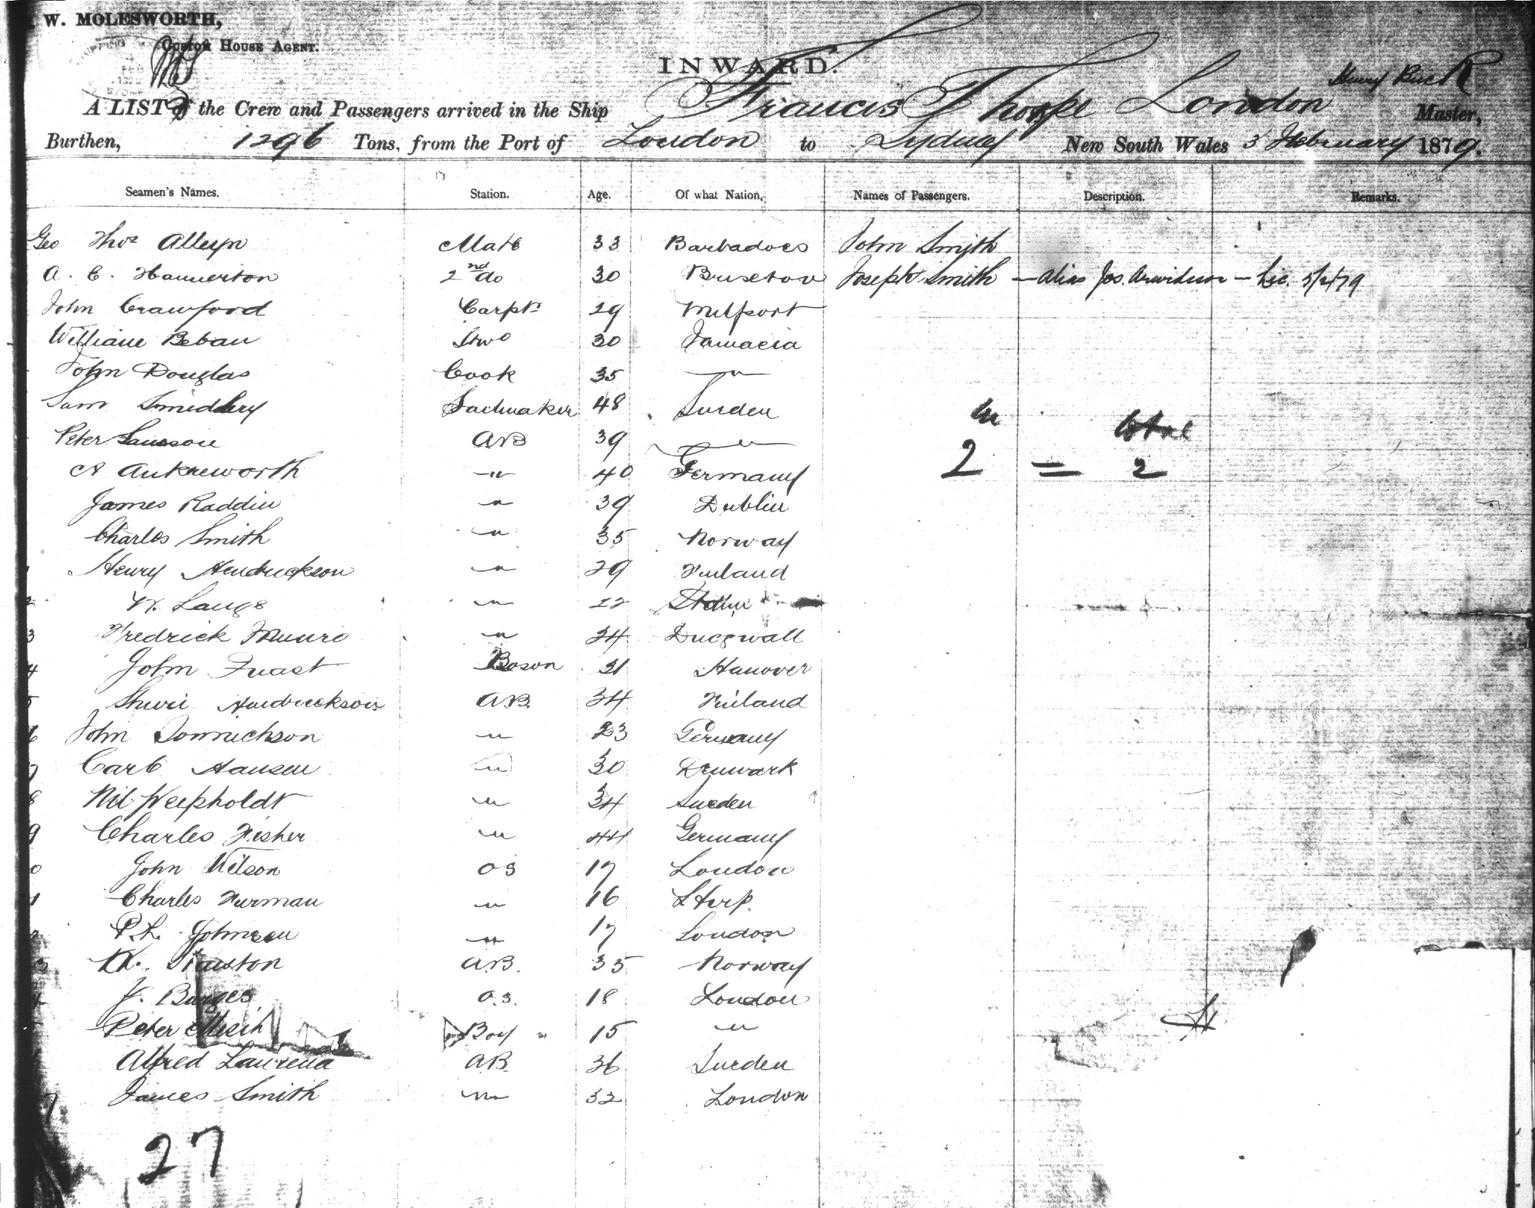 W. MOLESWORTH,
Custom House Agent.
INWARD.
A LIST of the Crew and Passengers arrived in the Ship Francis Thorpe London Master,
Burthen, 1296 Tons, from the Port of London to Sydney New South Wales 3 February 1879.
Seamen's Names. Station. Age. Of what Nation, Names of Passengers. Description. Remarks.
Geo Thos Alleyn Mate 33 Barbadoes John Smith
A. C. Hannerton 2nd do 30 Joseph Smith — alias Jos. — 5/2/79
John Crawford Carptr 29 Milfort
William Beban Stwd 30 Jamacia
John Douglas Cook 35 "
Sam Smedley Sailmaker 48 Sweden
Peter AB 39 "
A " 40 Germany
James Raddin " 39 Dublin
Charles Smith " 35 Norway
Henry Hendrickson " 29 Finland
W. Lange " 22
3 Fredrick Munro " 24
4 John Bosun 31 Hanover
5 Hendrickson AB 34 Finland
6 John " 23 Germany
7 Carl Hansen " 30 Denmark
8 Nil " 34 Sweden
9 Charles Fisher " 44 Germany
0 John Wilson OS 17 London
1 Charles Furman " 16
P. L. Johnson " 17 London
3 AB. 35 Norway
J. Barges O.S. 18 London
Peter Boy 15 "
Alfred AB 36 Sweden
7 James Smith " 32 London
2 = 2
27